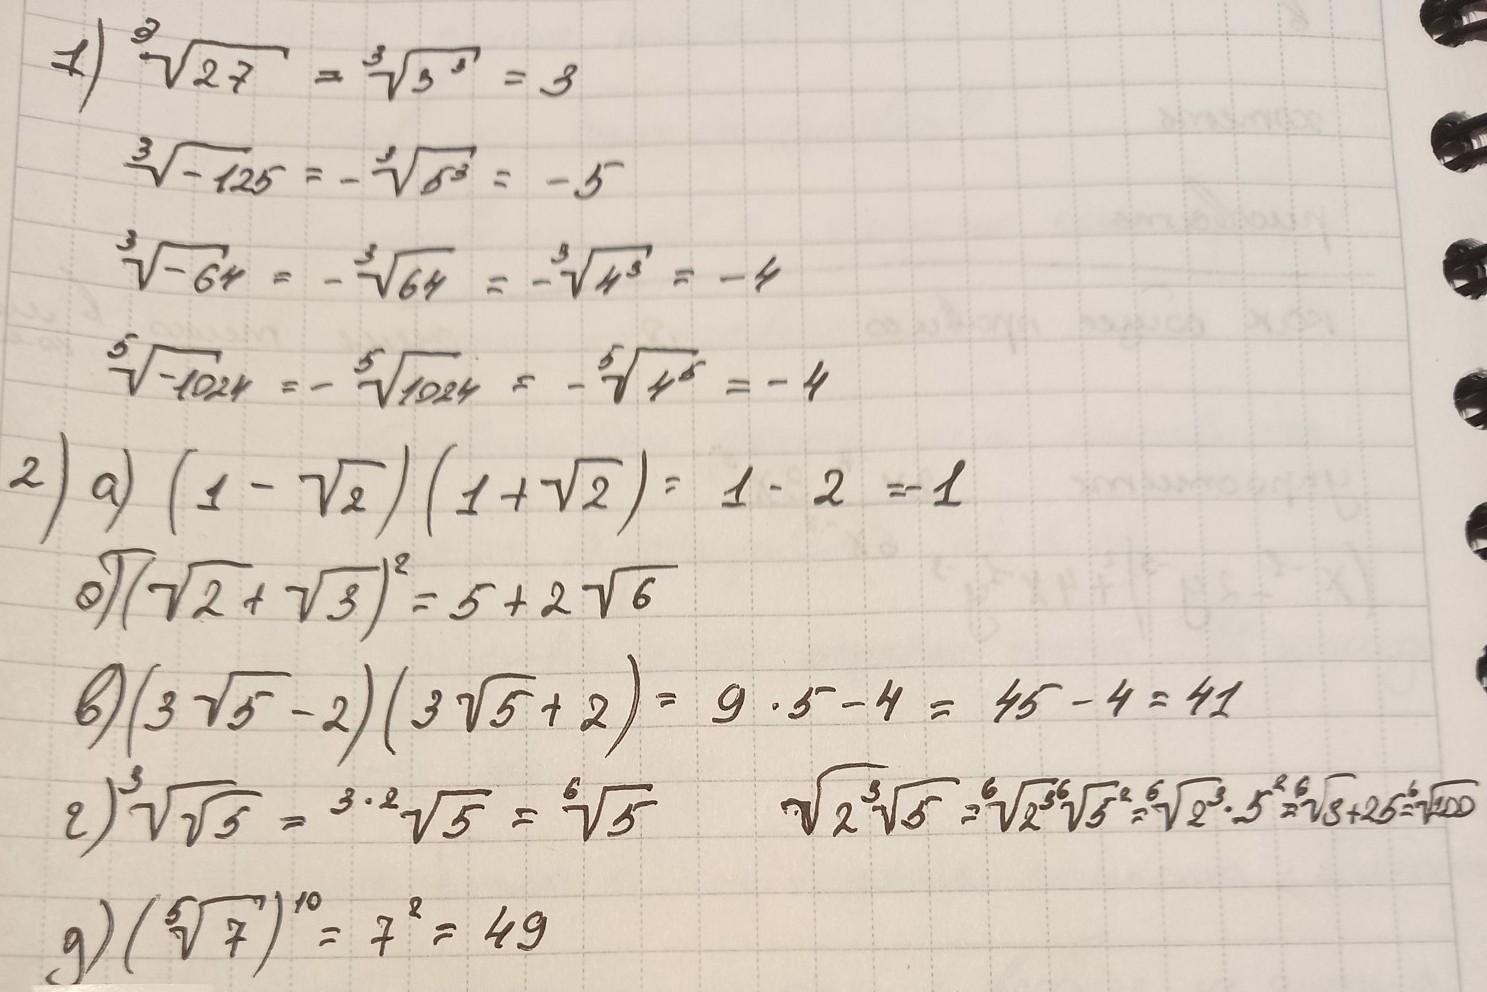 1) ∛27 = ∛3³ = 3
∛-125 = -∛5³ = -5
∛-64 = -∛64 = -∛4³ = -4
⁵√-1024 = -⁵√1024 = -⁵√4⁵ = -4
2) а) (1 - √2)(1 + √2) = 1 - 2 = -1
б) (√2 + √3)² = 5 + 2√6
в) (3√5 - 2)(3√5 + 2) = 9 · 5 - 4 = 45 - 4 = 41
г) ³√√5 = ³·²√5 = ⁶√5 √2 ³√5 = ⁶√2³ ⁶√5² = ⁶√2³·5² = ⁶√8+25 = ⁶√100
д) (⁵√7)¹⁰ = 7² = 49